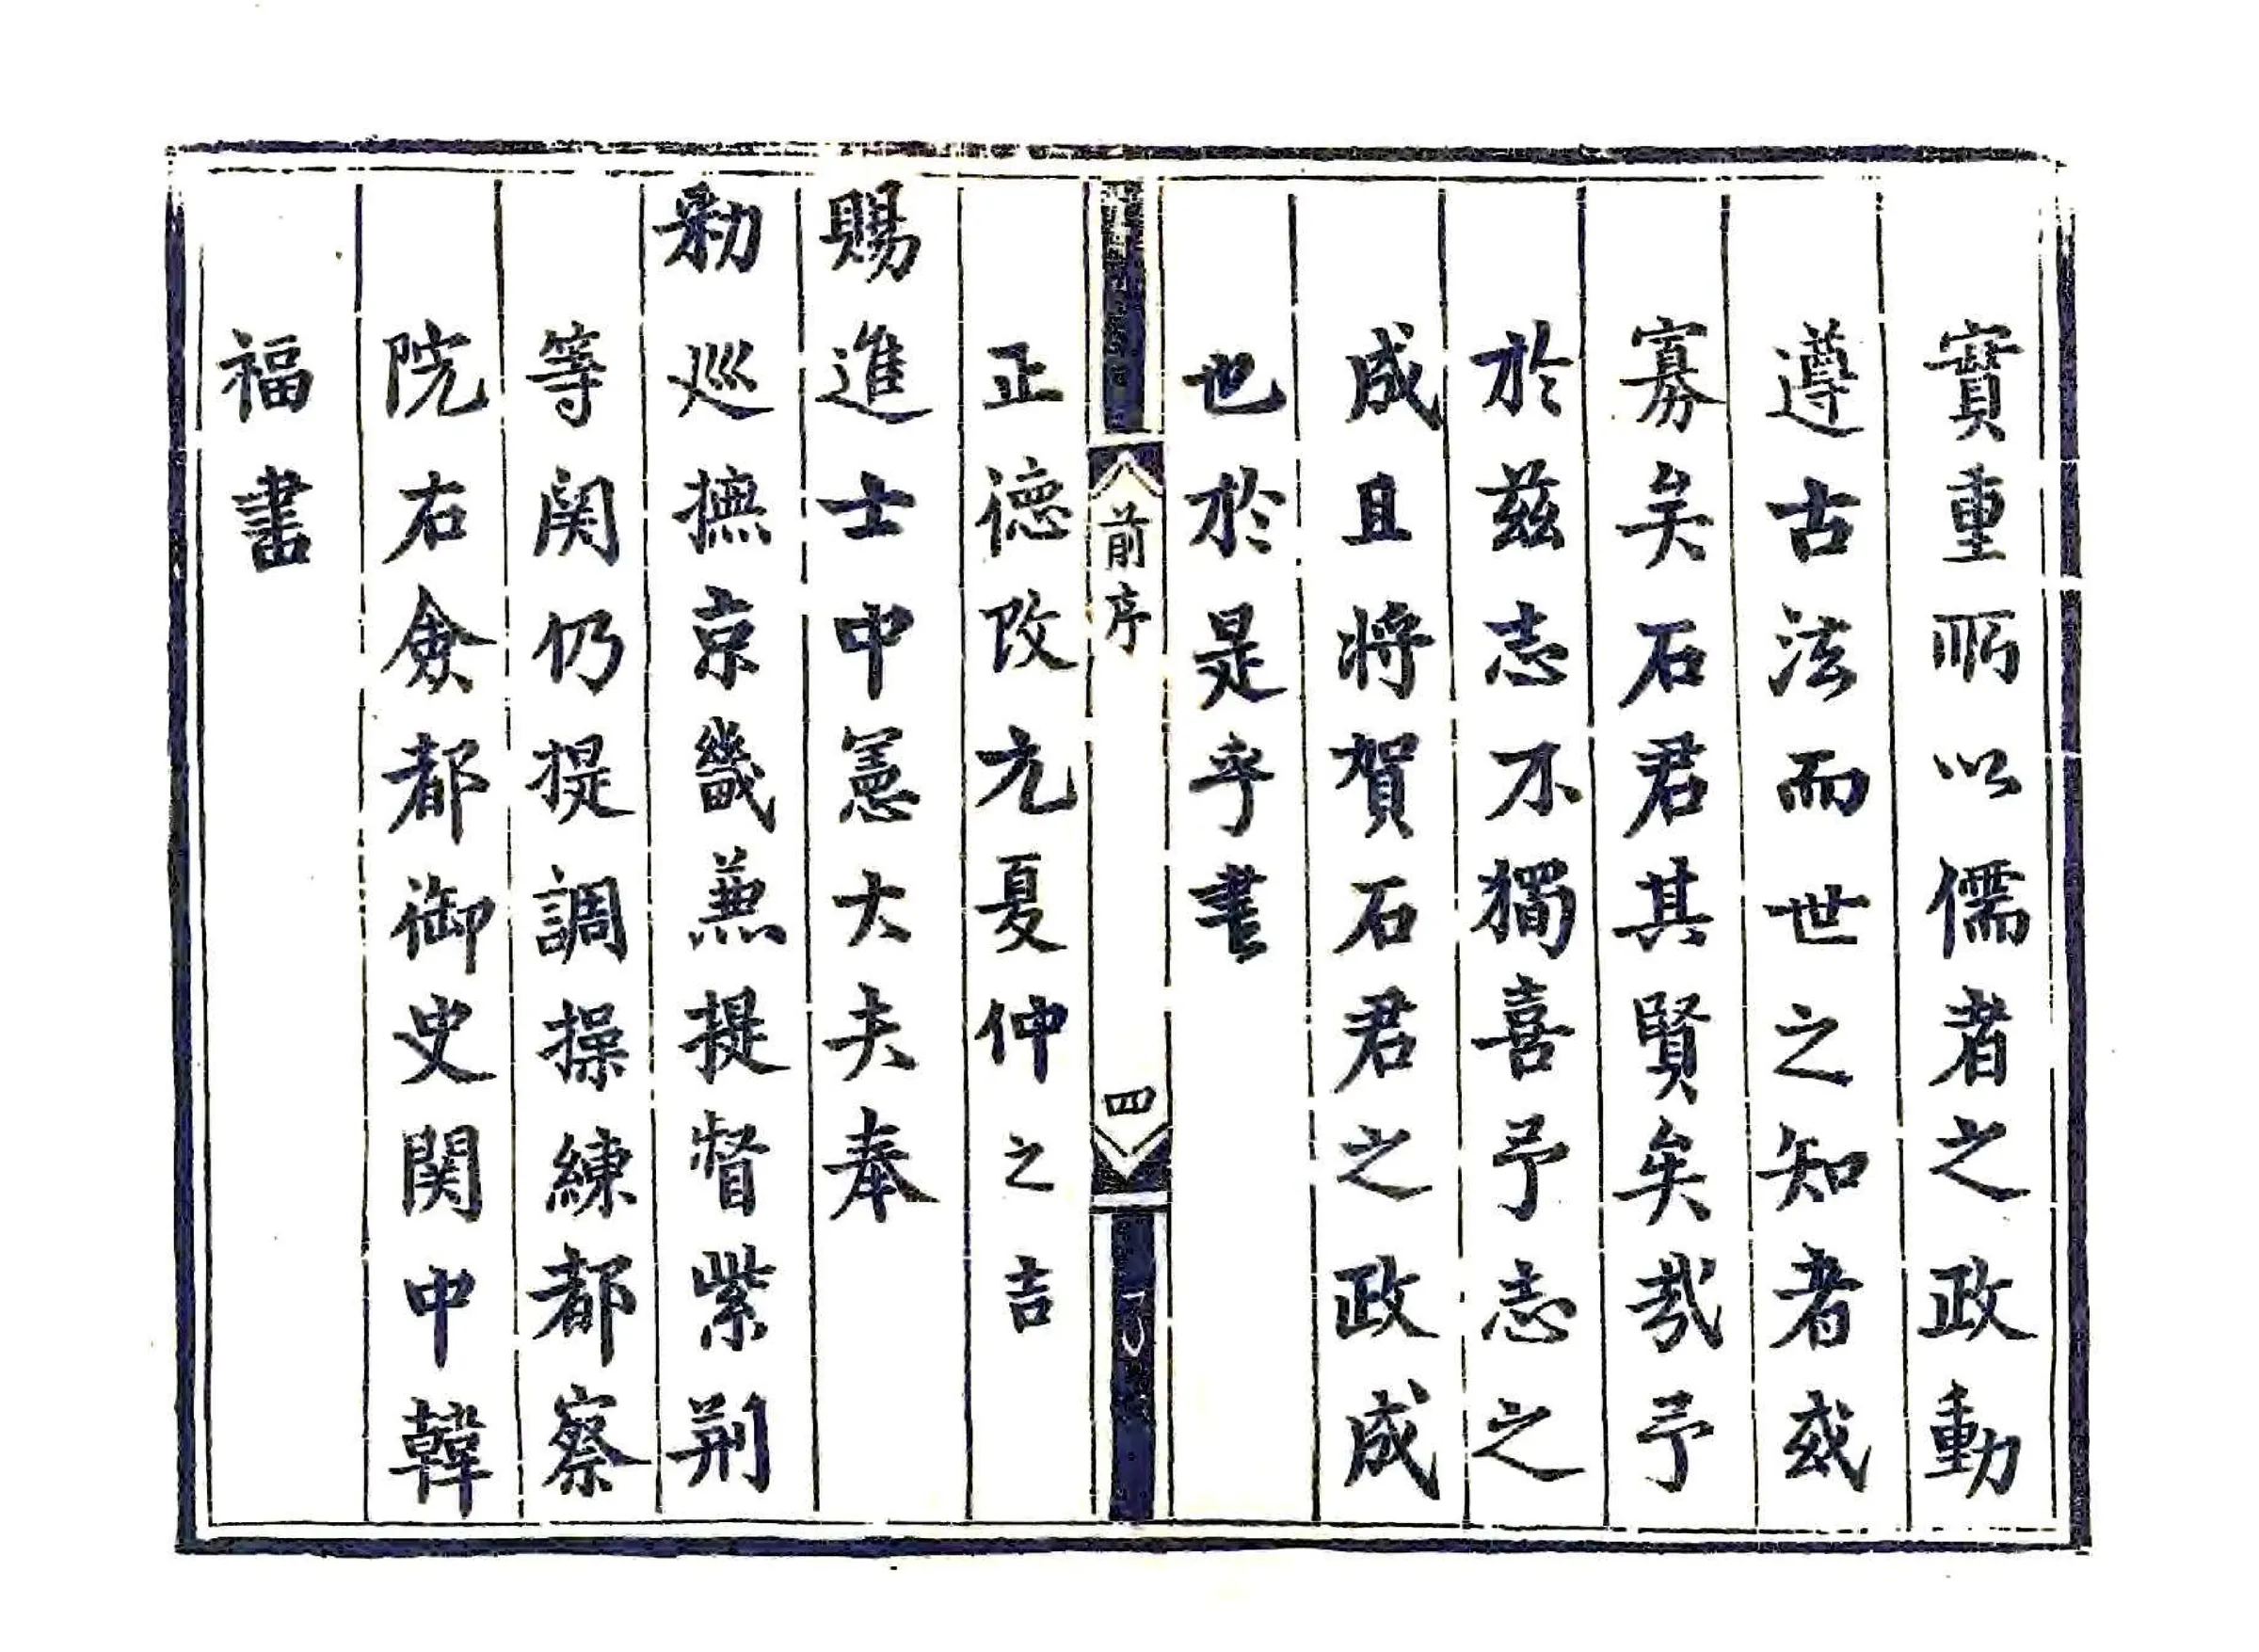 實重所以儒者之政動
遵古法而世之知者或
寡矣石君其賢矣哉予
於茲志不獨喜予志之
成且將賀石君之政成
也於是乎書
前序
四
正德改元夏仲之吉
賜進士中憲大夫奉
勑巡撫京畿兼提督紫荊
等関仍提調操練都察
院右僉都御史関中韓
福書